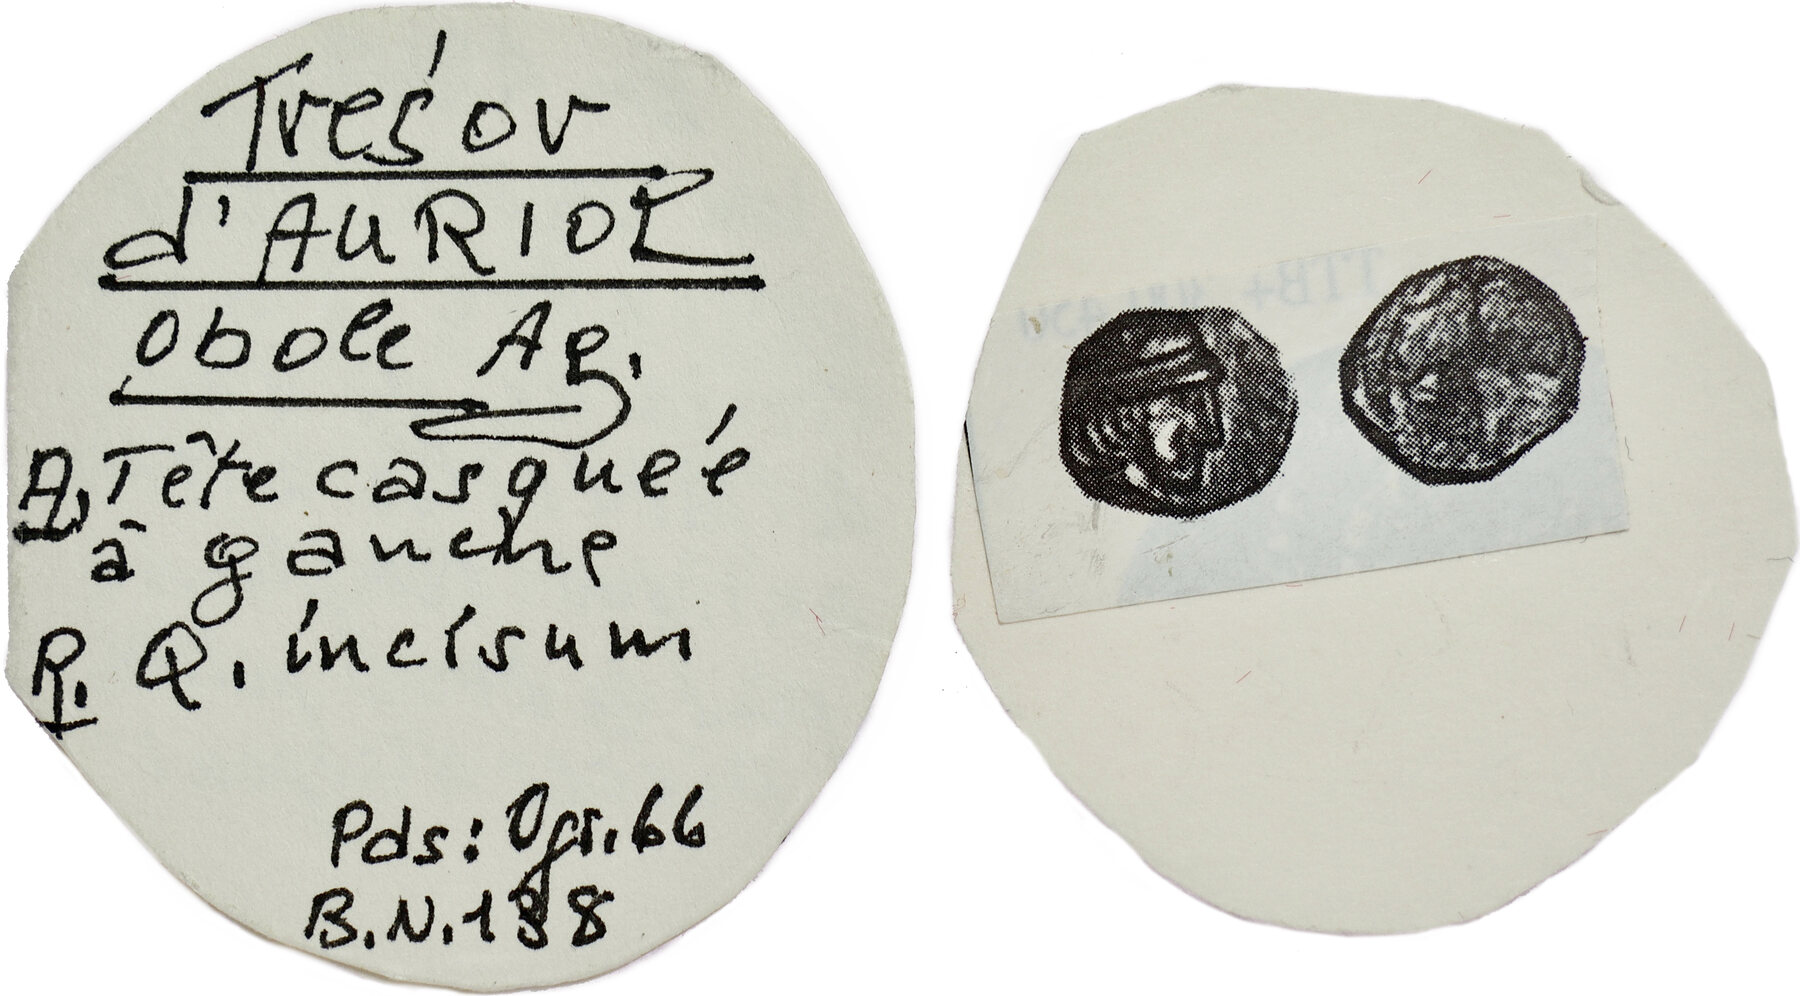 Trésor
d'AURIOL
Obole Ag.
A. Tête casqueé
à gauche
R. Q. incisum
Pds: 0gr.66
B.N.138
TTB+